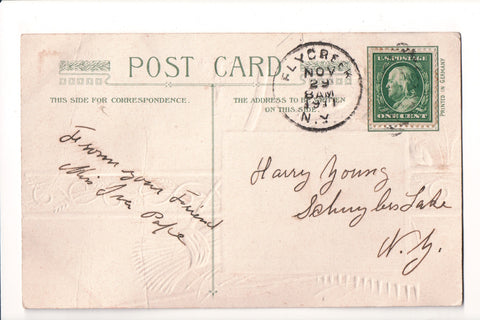 POST CARD
THIS SIDE FOR CORRESPONDENCE.
THE ADDRESS TO BE WRITTEN
ON THIS SIDE.
FLY CREEK
NOV
29
8AM
1911
N.Y.
U.S. POSTAGE
ONE CENT
PRINTED IN GERMANY
From your Friend
Miss Iva Pope
Harry Young
Schuyler Lake
N.Y.